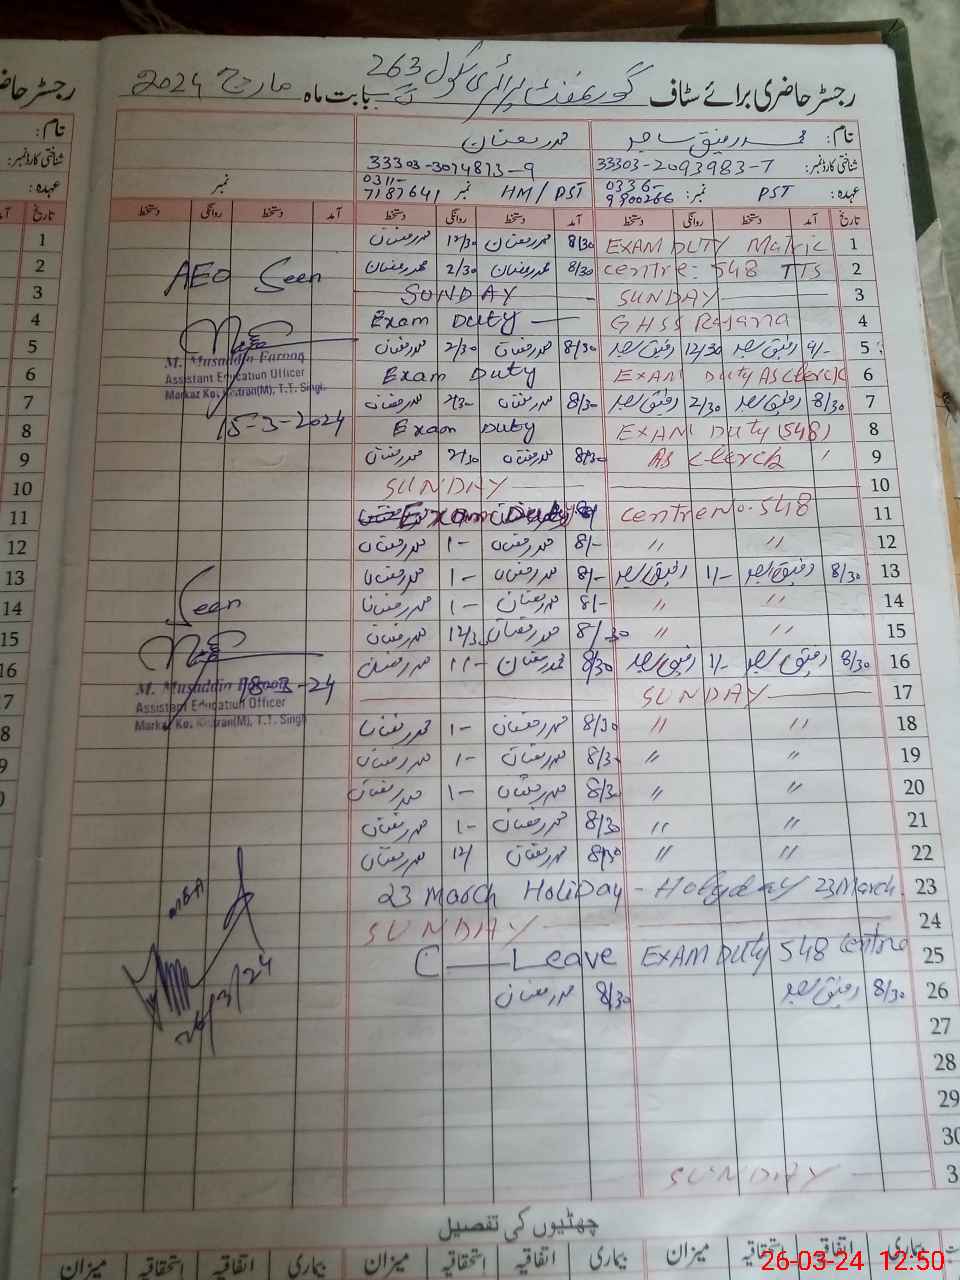 رجسٹر حاضری برائے سٹاف گورنمنٹ پرائمری سکول 263 گ ب بابت ماہ مارچ 2024
نام: محمد رفیق ساجد محمد رمضان
شناختی کارڈ نمبر: 33303-2093983-7 33303-3074873-9
عہدہ: PST نمبر: 0336-9900266 HM/PST نمبر 0311-7187641 نمبر
تاریخ آمد دستخط روانگی دستخط آمد دستخط روانگی دستخط آمد دستخط روانگی دستخط
1 EXAM DUTY Matric 8/30 محمد رمضان 12/30 محمد رمضان
2 Centre: 548 TTS 8/30 محمد رمضان 2/30 محمد رمضان
AEO Seen
3 SUNDAY SUNDAY
4 GHSS Rajana Exam Duty
5 9/- رفیق ساجد 12/30 رفیق ساجد 8/30 محمد رمضان 2/30 محمد رمضان
M. Musaddin Farooq
Assistant Education Officer
Markaz (M), T.T. Singh
6 EXAM Duty As Clerck Exam Duty
7 8/30 رفیق ساجد 2/30 رفیق ساجد 8/3- محمد رمضان 2/3- محمد رمضان
15-3-2024
8 EXAM Duty (548) Exam Duty
9 As Clerck 8/30 محمد رمضان 2/30 محمد رمضان
10 SUNDAY
11 Centre No. 548 Exam Duty
12 〃 〃 8/- محمد رمضان 1- محمد رمضان
13 8/30 رفیق ساجد 1/- رفیق ساجد 8/- محمد رمضان 1- محمد رمضان
14 〃 〃 8/- محمد رمضان 1- محمد رمضان
Seen
15 〃 〃 8/30 محمد رمضان 12/30 محمد رمضان
16 8/30 رفیق ساجد 1/- رفیق ساجد 8/30 محمد رمضان 11- محمد رمضان
18-3-24
M. Musaddin Farooq
Assistant Education Officer
Markaz (M), T.T. Singh
17 SUNDAY
18 〃 〃 8/30 محمد رمضان 1- محمد رمضان
19 〃 〃 8/30 محمد رمضان 1- محمد رمضان
20 〃 〃 8/30 محمد رمضان 1- محمد رمضان
21 〃 〃 8/30 محمد رمضان 1- محمد رمضان
22 〃 〃 8/30 محمد رمضان 12/ محمد رمضان
23 Holyday 23 March 23 March HoliDay
24 SUNDAY
25 EXAM Duty 548 Centre C Leave
26 8/30 رفیق ساجد 8/30 محمد رمضان
26/3/24
27
28
29
30
3 SUNDAY
چھٹیوں کی تفصیل
بیماری اتفاقیہ استحقاقیہ میزان بیماری اتفاقیہ استحقاقیہ میزان بیماری اتفاقیہ استحقاقیہ میزان
26-03-24 12:50